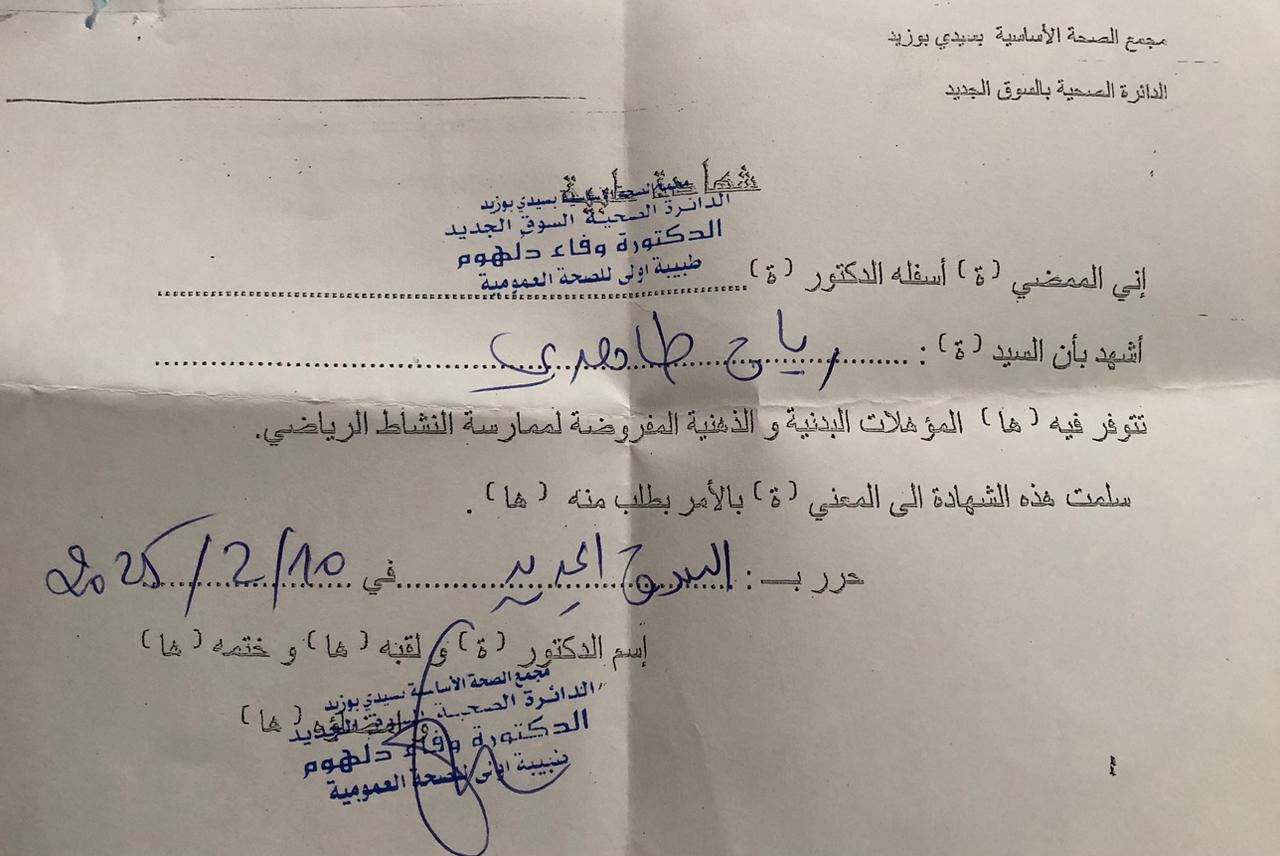 مجمع الصحة الأساسية بسيدي بوزيد
الدائرة الصحية بالسوق الجديد
شهادة طبية
مجمع الصحة الأساسية بسيدي بوزيد
الدائرة الصحية السوق الجديد
الدكتورة وفاء دلهوم
طبيبة اولى للصحة العمومية
إني الممضي (ة) أسفله الدكتور (ة)
أشهد بأن السيد (ة) : رباح طاهري
تتوفر فيه (ها) المؤهلات البدنية و الذهنية المفروضة لممارسة النشاط الرياضي.
سلمت هذه الشهادة الى المعني (ة) بالأمر بطلب منه (ها) .
حرر بـ : السوق الجديد في 2025/2/10
إسم الدكتور (ة) و لقبه (ها) و ختمه (ها)
و إمضاؤه (ها)
مجمع الصحة الأساسية بسيدي بوزيد
الدائرة الصحية السوق الجديد
الدكتورة وفاء دلهوم
طبيبة اولى للصحة العمومية